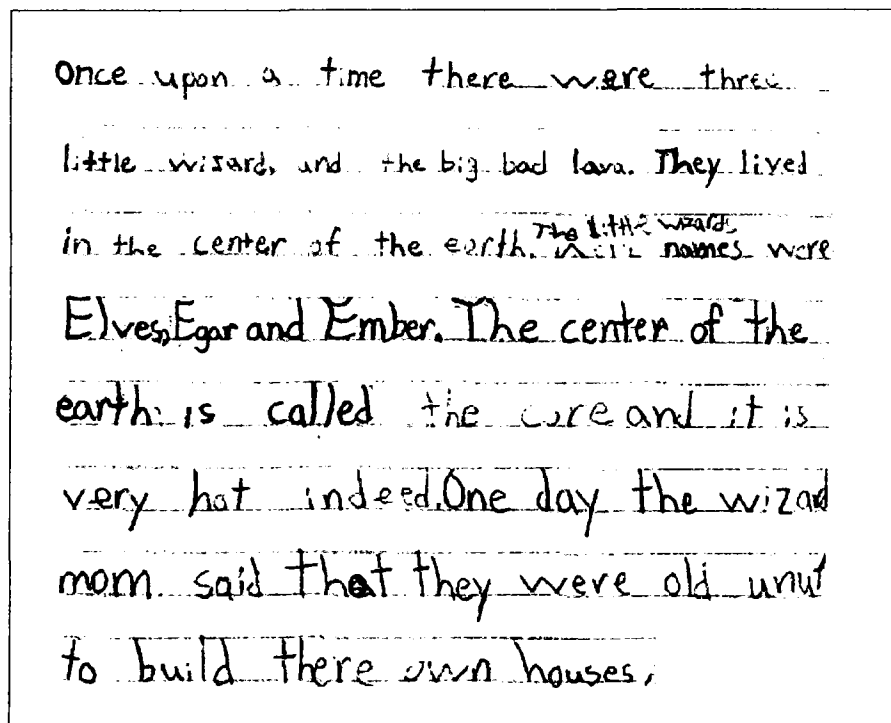 Once upon a time there were three
little wizards and the big bad lava. They lived
in the center of the earth. The little wizards names were
Elves, Egar and Ember. The center of the
earth is called the core and it is
very hot indeed. One day the wizard
mom said that they were old unuf
to build there own houses.